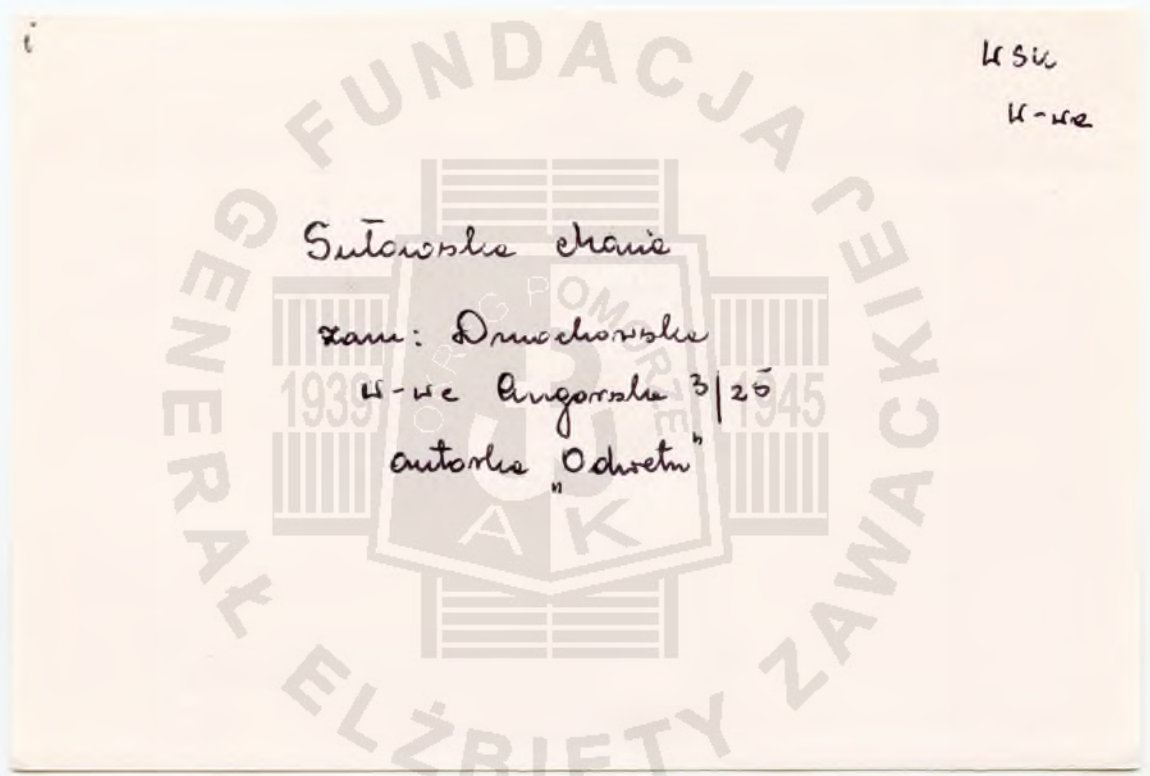 i
WSK
W-wa
Sułowska Maria
zam: Dmochowska
W-wa Angorska 3/25
autorka „Odwetu"
FUNDACJA JEJ
GENERAŁ ELŻBIETY ZAWACKIEJ
OKRĘG POMORZE
1939
1945
AK